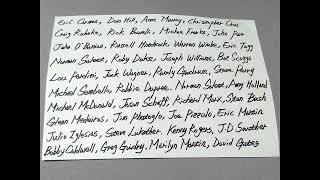 Eric Carmen, Dan Hill, Anne Murray, Christopher Cross
Rick Michael Franks, John Parr
John O'Banion, Russell Hitchcock, Warren Wiebe, Eric Tagg
Norman Saleet, Robby Dukes, Joseph Williams, Boz Scaggs
Lou Pardini, Jack Wagner, Randy Goodrum, Steve Perry
Michael Sembello, Robbie Dupree, Norman Saleet, Amy Holland
Michael McDonald, Jason Scheff, Richard Marx, Stan Bush
Glenn Medeiros, Jim Photoglo, Joe Pizzulo, Eric Martin
Julio Iglesias, Steve Lukather, Kenny Rogers, J.D Souther
Bobby Caldwell, Greg Guidry, Marilyn Martin, David Gates